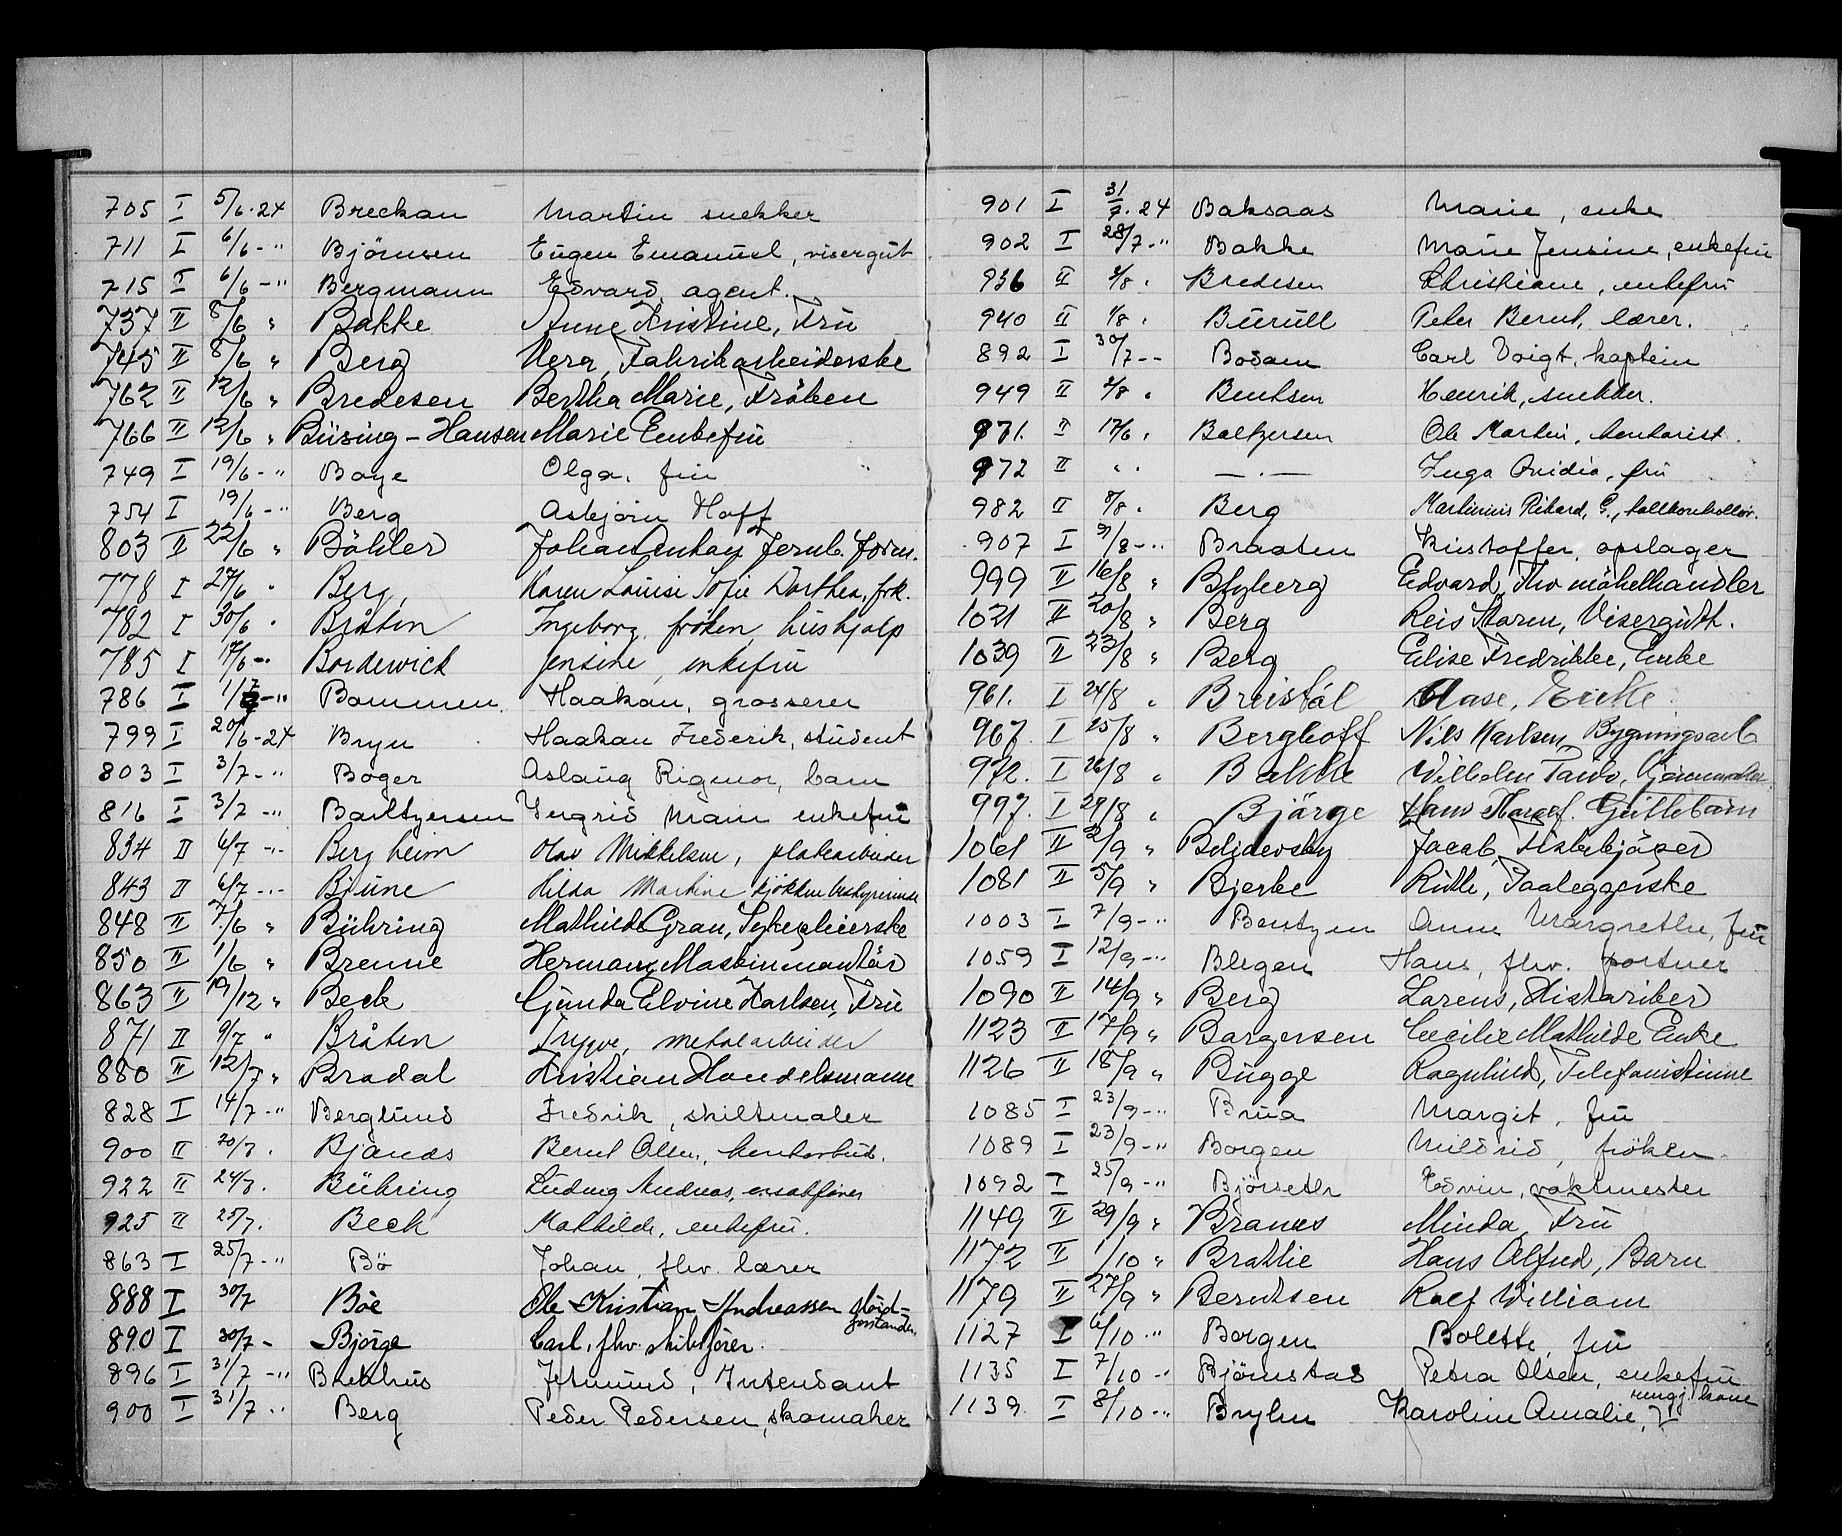 705 I 5/6·24 Breckan Martin snekker
711 I 6/6-" Björnsen Eugen Emanuel, visergut
715 I 6/6-" Bergmann Edvard, agent.
737 II 8/6 " Bakke Anne Kristine, Frü
745 II 8/6 " Berg Vera, Fabrikarbeiderske
762 II 12/6 " Bredesen Bertha Marie, Fröken
766 II 12/6 " Büsing-Hansen Marie Enkefrü
749 I 19/6-" Boye Olga, frü
754 I 19/6-" Berg Asbjörn Hoff
803 II 22/6 " Böhler Johan Jernb. form.
778 I 27/6 " Berg, Karen Louise Sofie Dorthea, frk.
782 I 30/6 " Bråten Ingeborg, fröken, hüshjelp
785 I 17/6-" Borderwick Jensine, enkefrü
786 I 1/7-" Bommen Haakon, grosserer
799 I 20/6-24 Bryn Haakon Frederik, stüdent
803 I 3/7-" Böger Aslaüg Rigmor, barn
816 I 3/7-" Baeltzersen Ingrid Marie enkefrü
834 II 6/7-" Bergheim Olav Mikkelsen, platearbeider
843 II 6/7-" Brüne Hilda Martine kjökkenbestyrerinde
848 II 7/6 " Bühring Mathilde Gran, Sykepleierske
850 II 1/6 " Brenne Herman, Maskinmontör
863 II 19/12 " Beck Gunda Elvine Karlsen, Frü
871 II 9/7 " Bråten Trygve, metalarbeider
880 II 12/7 " Bradal Kristian Handelsmann
828 I 14/7-" Berglund Fredrik, skiltmaler
900 II 20/7. Bjanes Bernt Olsen, kontorbud.
922 II 24/7. Bühring Ludvig Andreas,
925 II 25/7. Beck Mathilde, enkefru.
863 I 25/7-" Bö Johan, fhv. lærer
888 I 30/7 Böe Ole Kristian Andreassen
890 I 30/7- Bjørge Carl, fhv. skibsfører.
896 I 31/7-" Brekhus Jetmund, Intendant
900 I 31/7 " Berg Peder Pedersen, skomaker
901 I 31/7·24 Baksaas Marie, enke
902 I 28/7-" Bakke Marie Jensine, enkefrü
936 II 2/8 " Bredesen Christiane, enkefru
940 II 1/8 " Burull Peter Bernt, lærer.
892 I 30/7-- Bodom Carl Voigt, kaptein
949 II 2/8 " Bentsen Henrik, snekker.
971. II 17/6 " Baltzersen Ole Martin, kontorist.
972 II " " —·— Inga Ovidia, fru
982 II 8/8 " Berg Martinius Rikard, G., tollkontrollør.
907 I 9/8-" Braaten Kristoffer, opslager
999 II 16/8 " Blyberg Edvard, Fhv möbelhandler
1021 II 20/8 " Berg Reis Maren, Visergutt.
1039 II 23/8 " Berg Elise Fredrikke, Enke
961. I 24/8 " Breistöl Aase, Enke
967. I 25/8 " Berghoff Nils Karlsen, Bygningsarb
972. I 26/8 " Bakke Wilhelm
997. I 29/8 " Björge Hans Guttebarn
1061 II 2/9 " Beljdevsky Jacob, Fiskekjöper
1081 II 5/9 " Bjerke Ruth, Paaleggerske
1003 I 7/9-" Bentzen Anne Margrethe, frü
1059 I 12/9-" Blegen Hans, fhv. portner
1090 II 14/9 " Berg Lorens, Historiker
1123 II 17/9 " Borgersen Cecilie Mathilde Enke
1126 II 18/9 " Bugge Ragnhild, Telefonistinne
1085 I 23/9-" Brua Margit, frü
1089 I 23/9-" Borgen Mildrid, fröken
1092 I 25/9-" Björseth Edvin, vaktmester
1149 II 29/9 " Branes Minda, Frü
1172 II 1/10 " Bratlie Hans Alfred, Barn
1179 II 27/9 " Berntsen Rolf William
1127 I 6/10 " Borgen Bolette, frü
1135 I 7/10 " Björnstad Petra Olsen, enkefrü
1139 I 8/10 " Brylm Karoline Amalie, rengj. kone